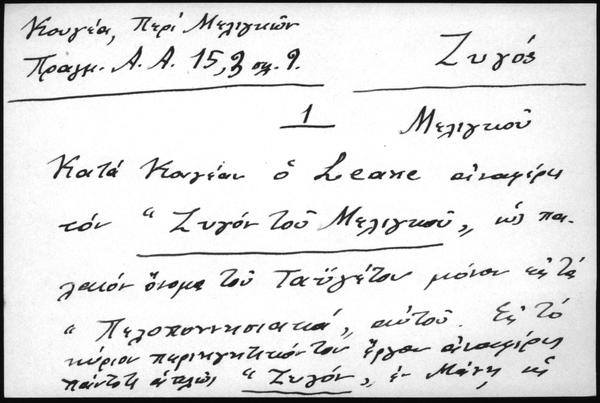 Κουγέα, Περί Μελιγκῶν
Πραγμ. Α. Α. 15, 3 σελ. 9.
Ζυγός
1
Μελιγκοῦ
Κατά Κουγέαν ὁ Leake ἀναφέρει
τόν "Ζυγόν τοῦ Μελιγκοῦ", ὡς πα-
λαιόν ὄνομα τοῦ Ταΰγέτου μόνον εἰς τά
"Πελοποννησιακά", αὐτοῦ. Εἰς τό
κύριον περιηγητικόν του ἔργον ἀναφέρει
πάντοτε ἁπλῶς "Ζυγόν", ἐν Μάνῃ ὡς